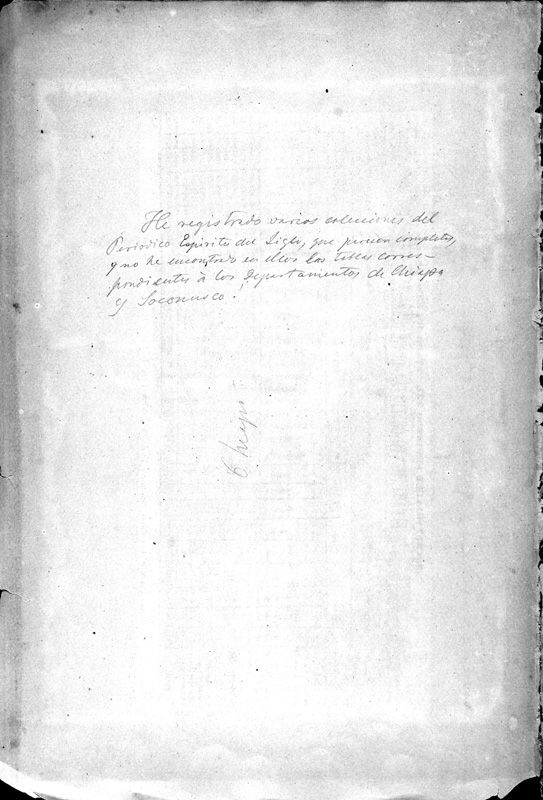 He registrado varias colecciones del
Periodico Espiritu del Siglo, que parecen completas,
y no he encontrado en ellas las tablas corres-
pondientes á los Departamentos de Chiapa
y Soconusco.